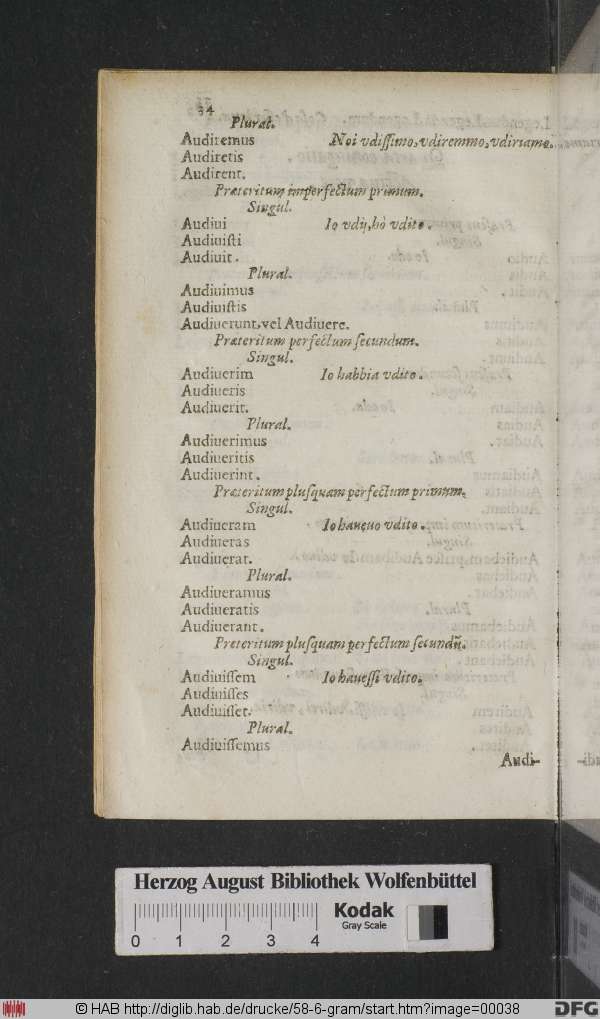 34
Plural.
Audiremus Noi vdissimo, vdiremmo, vdiriamo.
Audiretis
Audirent.
Præteritum imperfectum primum.
Singul.
Audiui Io vdij, hò vdito.
Audiuisti
Audiuit.
Plural.
Audiuimus
Audiuistis
Audiuerunt, vel Audiuere.
Præteritum perfectum secundum.
Singul.
Audiuerim Io habbia vdito.
Audiueris
Audiuerit.
Plural.
Audiuerimus
Audiueritis
Audiuerint.
Præteritum plusquam perfectum primum.
Singul.
Audiueram Io haueuo vdito.
Audiueras
Audiuerat.
Plural.
Audiueramus
Audiueratis
Audiuerant.
Preteritum plusquam perfectum secundũ.
Singul.
Audiuissem Io hauessi vdito.
Audiuisses
Audiuisset.
Plural.
Audiuissemus
Audi-
Herzog August Bibliothek Wolfenbüttel
0 1 2 3 4
Kodak
Gray Scale
© HAB http://diglib.hab.de/drucke/58-6-gram/start.htm?image=00038
DFG